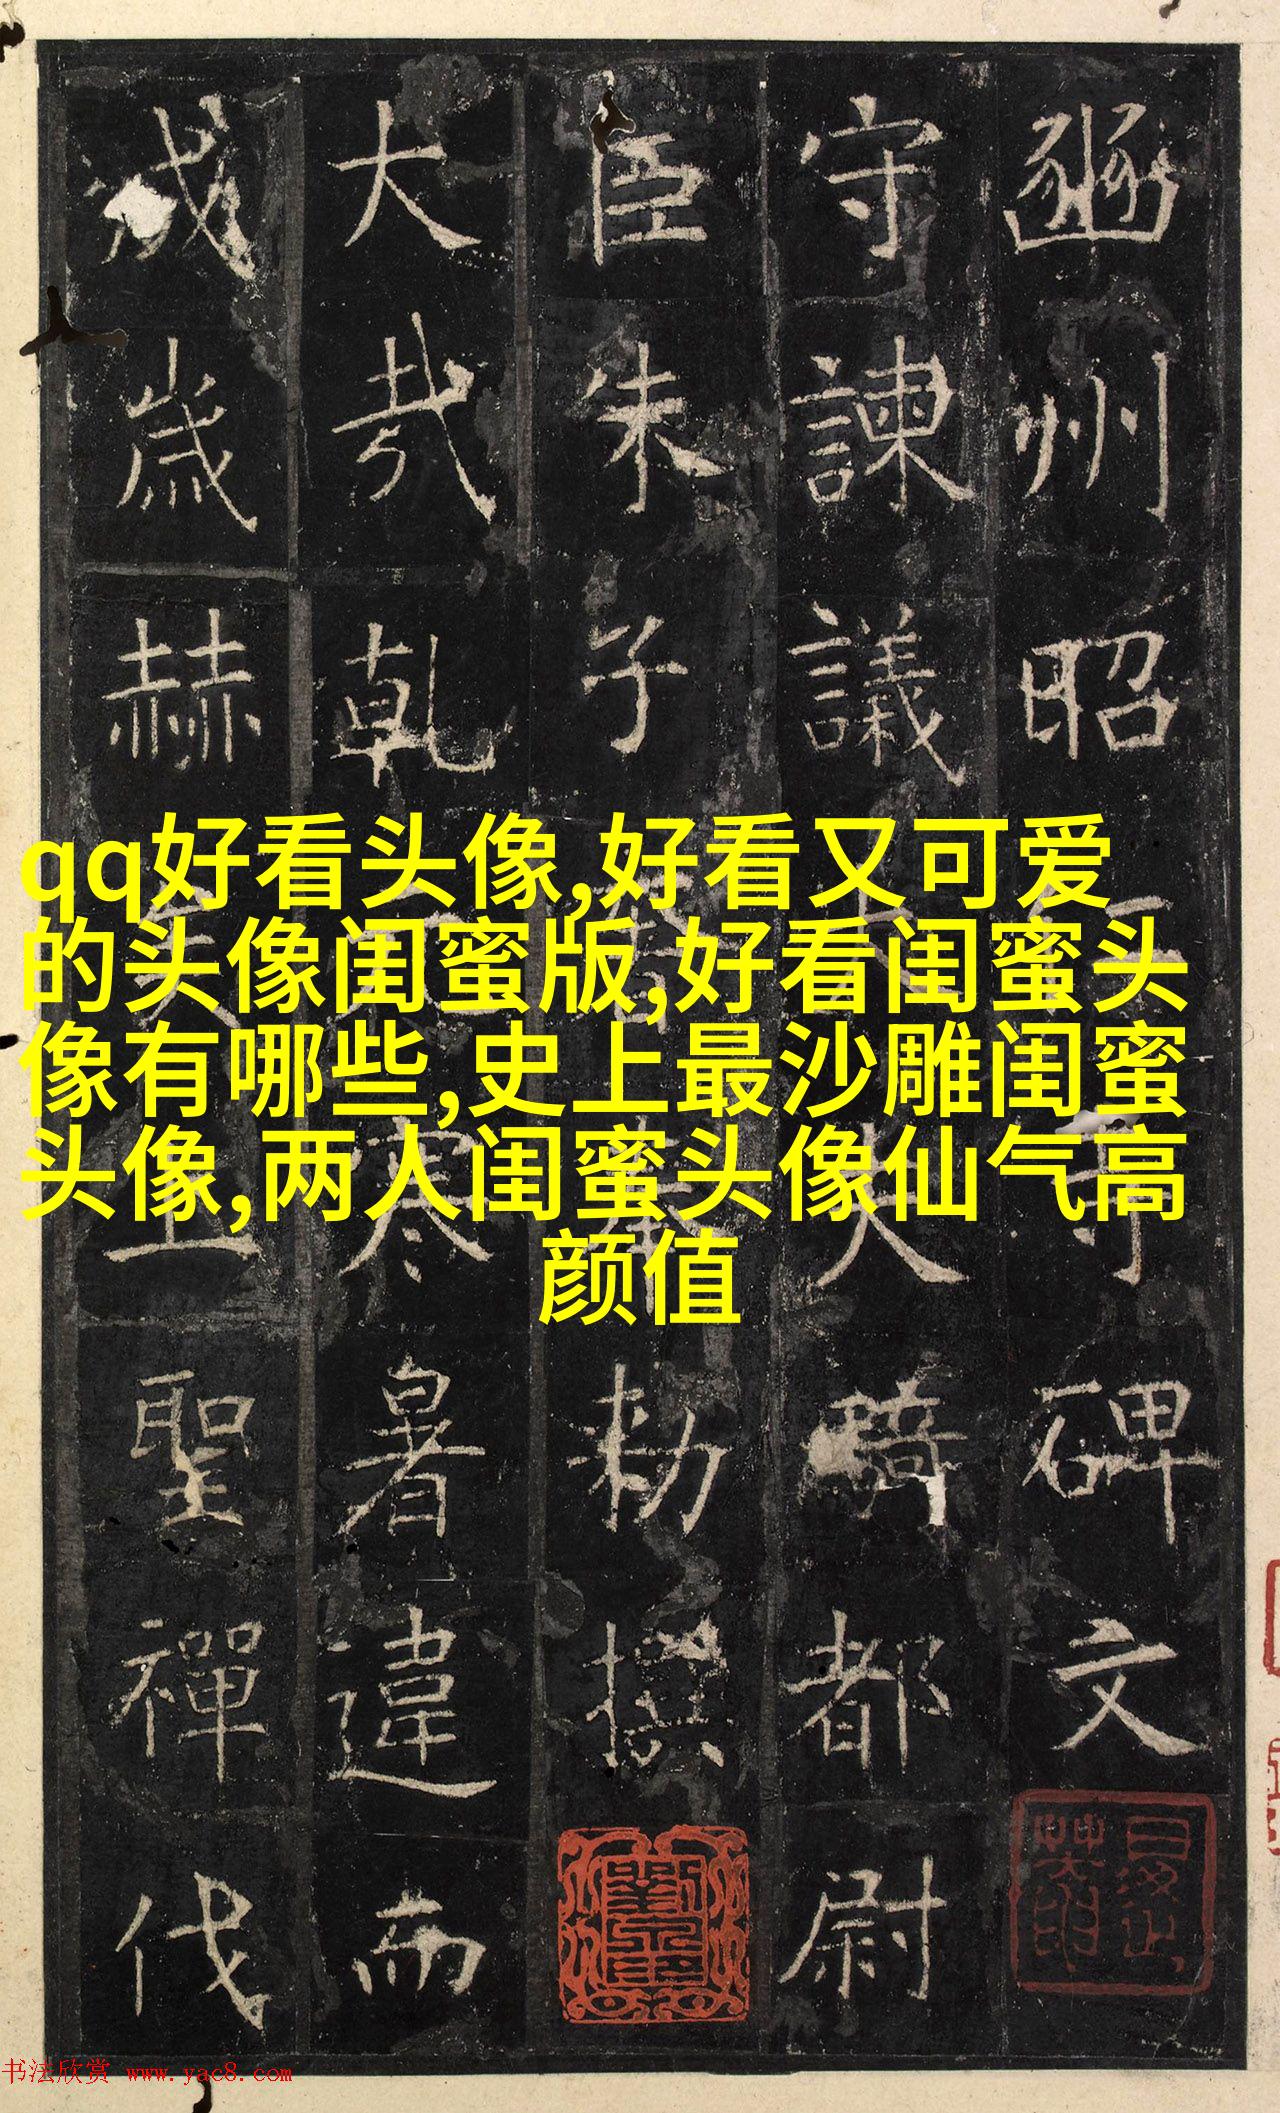 豳州昭仁寺碑文
守諫議大夫騎都尉
臣朱子奢奉勑撰
大哉乾元寒暑違而
成歲赫矣上聖禪代
qq好看头像,好看又可爱
的头像闺蜜版,好看闺蜜头
像有哪些,史上最沙雕闺蜜
头像,两人闺蜜头像仙气高
颜值
书法欣赏 www.yac8.com